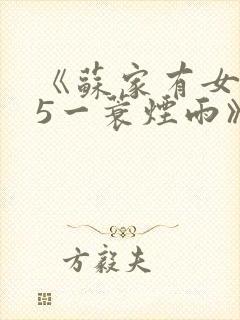 《蘇家有女
5一蓑煙雨》
方毅夫